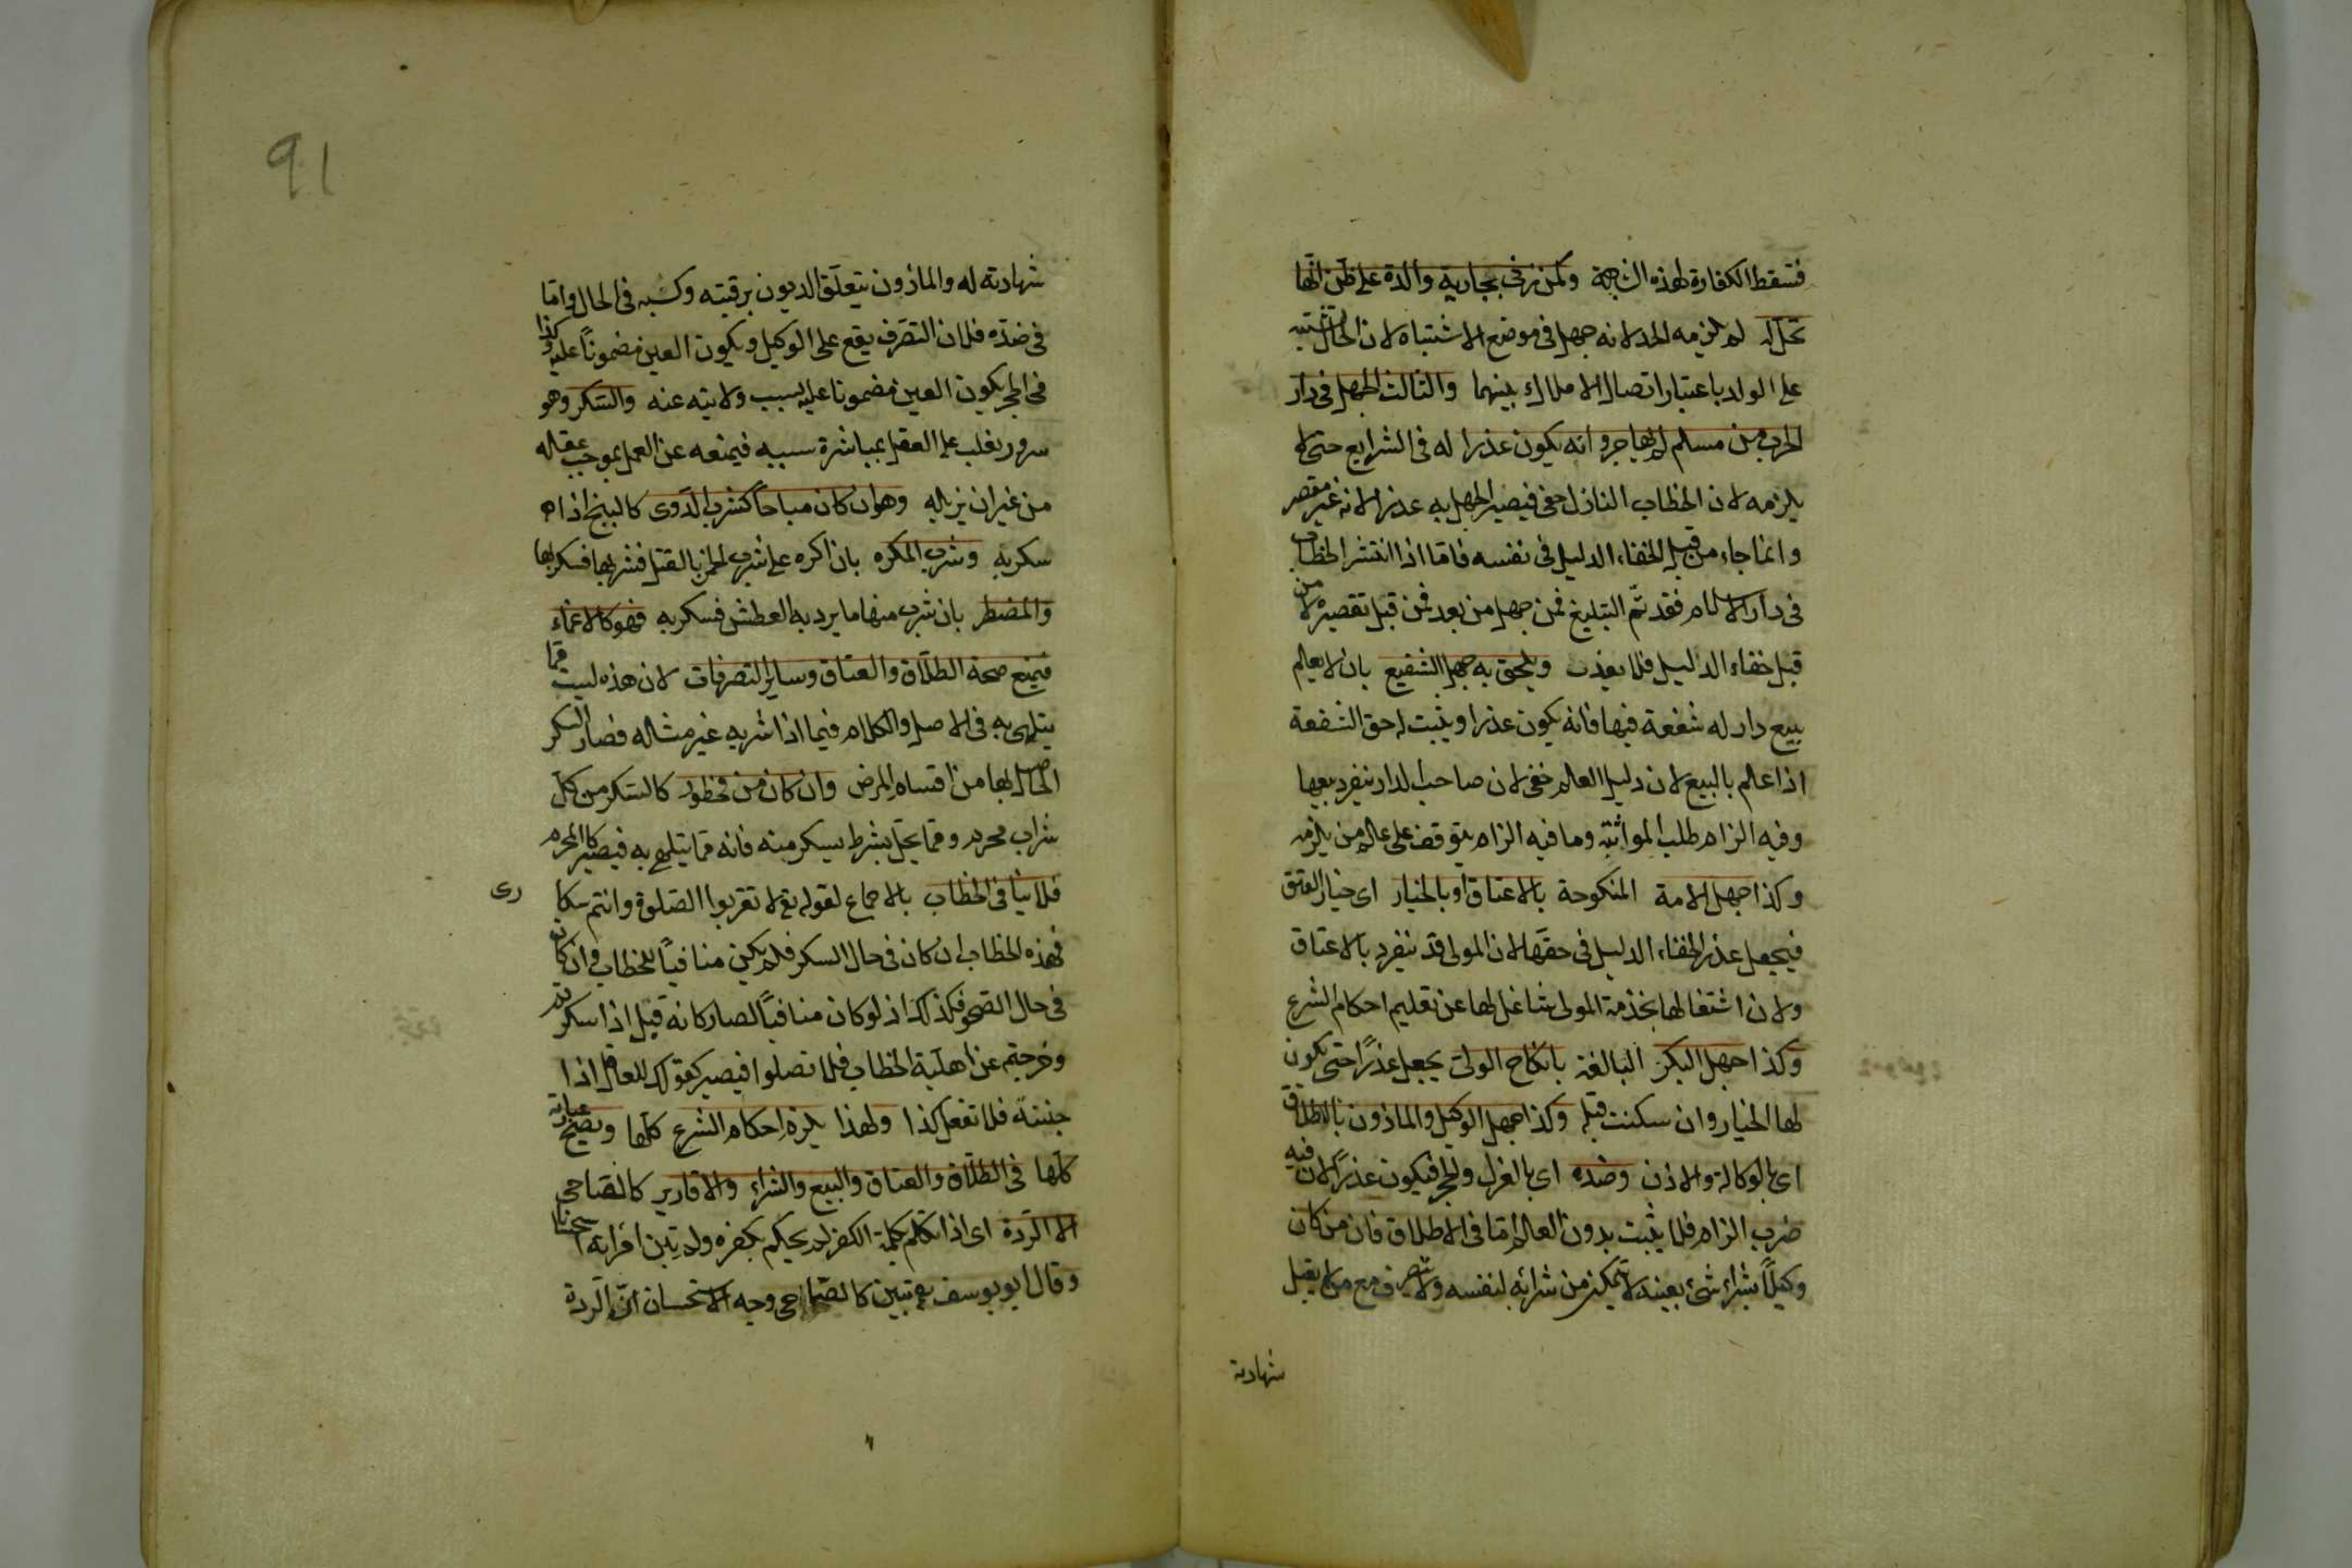 فتسقط الكفارة لهذه الشبهة وكمن زنى بجارية والده على ظن انها
تحل له لم يلزمه الحد لانه جهل فى موضع الاشتباه لان الحال تشتبه
على الولد باعتبار اتصال الاملاك بينهما والثالث الجهل فى دار
الحرب من مسلم لم يهاجر وانه يكون عذرا له فى الشرايع حتى لا
يلزمه لان الخطاب النازل خفى فيصير الجهل به عذرا لانه غير مقصر
وانما جاء من قبل الخفاء الدليل فى نفسه فاما اذا انتشر الخطاب
فى دار الاسلام فقد تم التبليغ فمن جهل من بعد فمن قبل تقصيره لا من
قبل خفاء الدليل فلا يعذر ويلحق به جهل الشفيع بان لا يعلم
ببيع دار له شفعة فيها فانه يكون عذرا ويثبت له حق الشفعة
اذا علم بالبيع لان دليل العلم خفى لان صاحب الدار ينفرد ببيعها
وفيه الزام طلب المواثبة وما فيه الزام يتوقف على علم من يلزمه
وكذا جهل الامة المنكوحة بالاعتاق او بالخيار اى خيار العتق
فيجعل عذر الخفاء الدليل فى حقها لان المولى قد ينفرد بالاعتاق
ولان اشتغالها بخدمة المولى شاغل لها عن تعليم احكام الشرع
وكذا جهل البكر البالغة بانكاح الولى يجعل عذرًا حتى يكون
لها الخيار وان سكتت قبله وكذا جهل الوكيل والماذون بالاطلاق
اى بالوكالة والاذن وضده اى بالعزل والحجر فيكون عذرًا لان فيه
ضرب الزام فلا يثبت بدون العلم اما فى الاطلاق فان من كان
وكيلًا بشراء شئ بعينه لا يتمكن من شرائه لنفسه ولا يتصرف مع من لا يقبل
شهادته
91
شهادته له والماذون يتعلق الديون برقبته وكسبه فى الحال واما
فى ضده فلان التصرف يقع على الوكيل ويكون العين مضمونًا عليه وكذا
فى الحجر يكون العين مضمونا عليه بسبب ولايته عنه والسكر وهو
سرور يغلب على العقل بمباشرة سببه فيمنعه عن العمل بموجب عقله
من غير ان يزيله وهو ان كان مباحًا كشرب الدوى كالبنج اذا
سكر به وشرب المكره بان اكره على شرب الخمر بالقتل فشربها فسكر بها
والمضطر بان شرب منها ما يرد به العطش فسكر به فهو كالاغماء
فيمنع صحة الطلاق والعتاق وساير التصرفات لان هذه ليست مما
يتلهى به فى الاصل والكلام فيما اذا شربه غير متاله فصار السكر
الحاصل بها من اقسام المرض وان كان من محظور كالسكر من كل
شراب محرم ومما يحل بشرط يسكر منه فانه مما يتلهى به فيصير كالمحرم
فلا ينافى الخطاب بالاجماع لقوله تع لا تقربوا الصلوة وانتم سكا
رى
فهذه الخطاب ان كان فى حال السكر فلم يكن منافيًا للخطاب وان كان
فى حال الصحو فكذلك اذ لو كان منافيًا لصار كانه قيل اذا سكرتم
وخرجتم عن اهلية الخطاب فلا تصلوا فيصير كقولك للعاقل اذا
جننت فلا تفعل كذا ولهذا يلزمه احكام الشرع كلها وتصح عباراته
كلها فى الطلاق والعتاق والبيع والشراء والاقارير كالصاحى
الا الردة اى اذا تكلم بكلمة الكفر لم يحكم بكفره ولم تبن امراته استحسانا
وقال ابو يوسف تبين كالصاحى وجه الاستحسان ان الردة